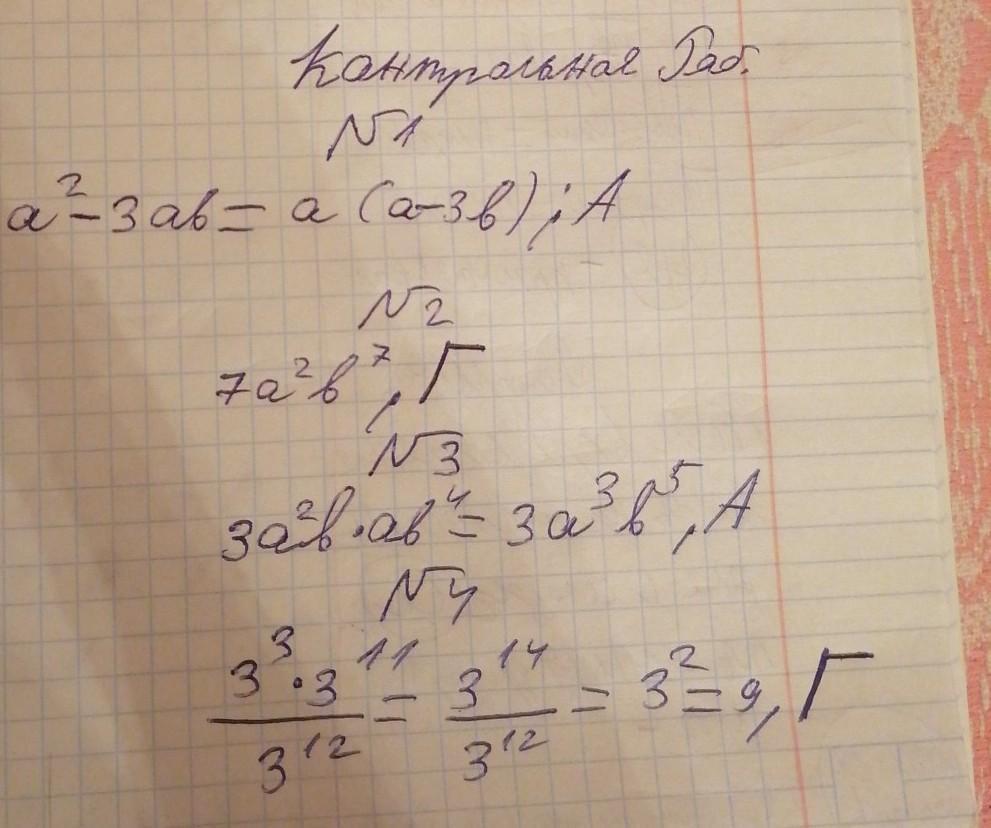 Контрольная Раб.
№1
a² - 3ab = a (a-3b) ; А
№2
7a²b⁷, Г
№3
3a²b · ab⁴ = 3a³b⁵, А
№4
3³ · 3¹¹ / 3¹² = 3¹⁴ / 3¹² = 3² = 9, Г